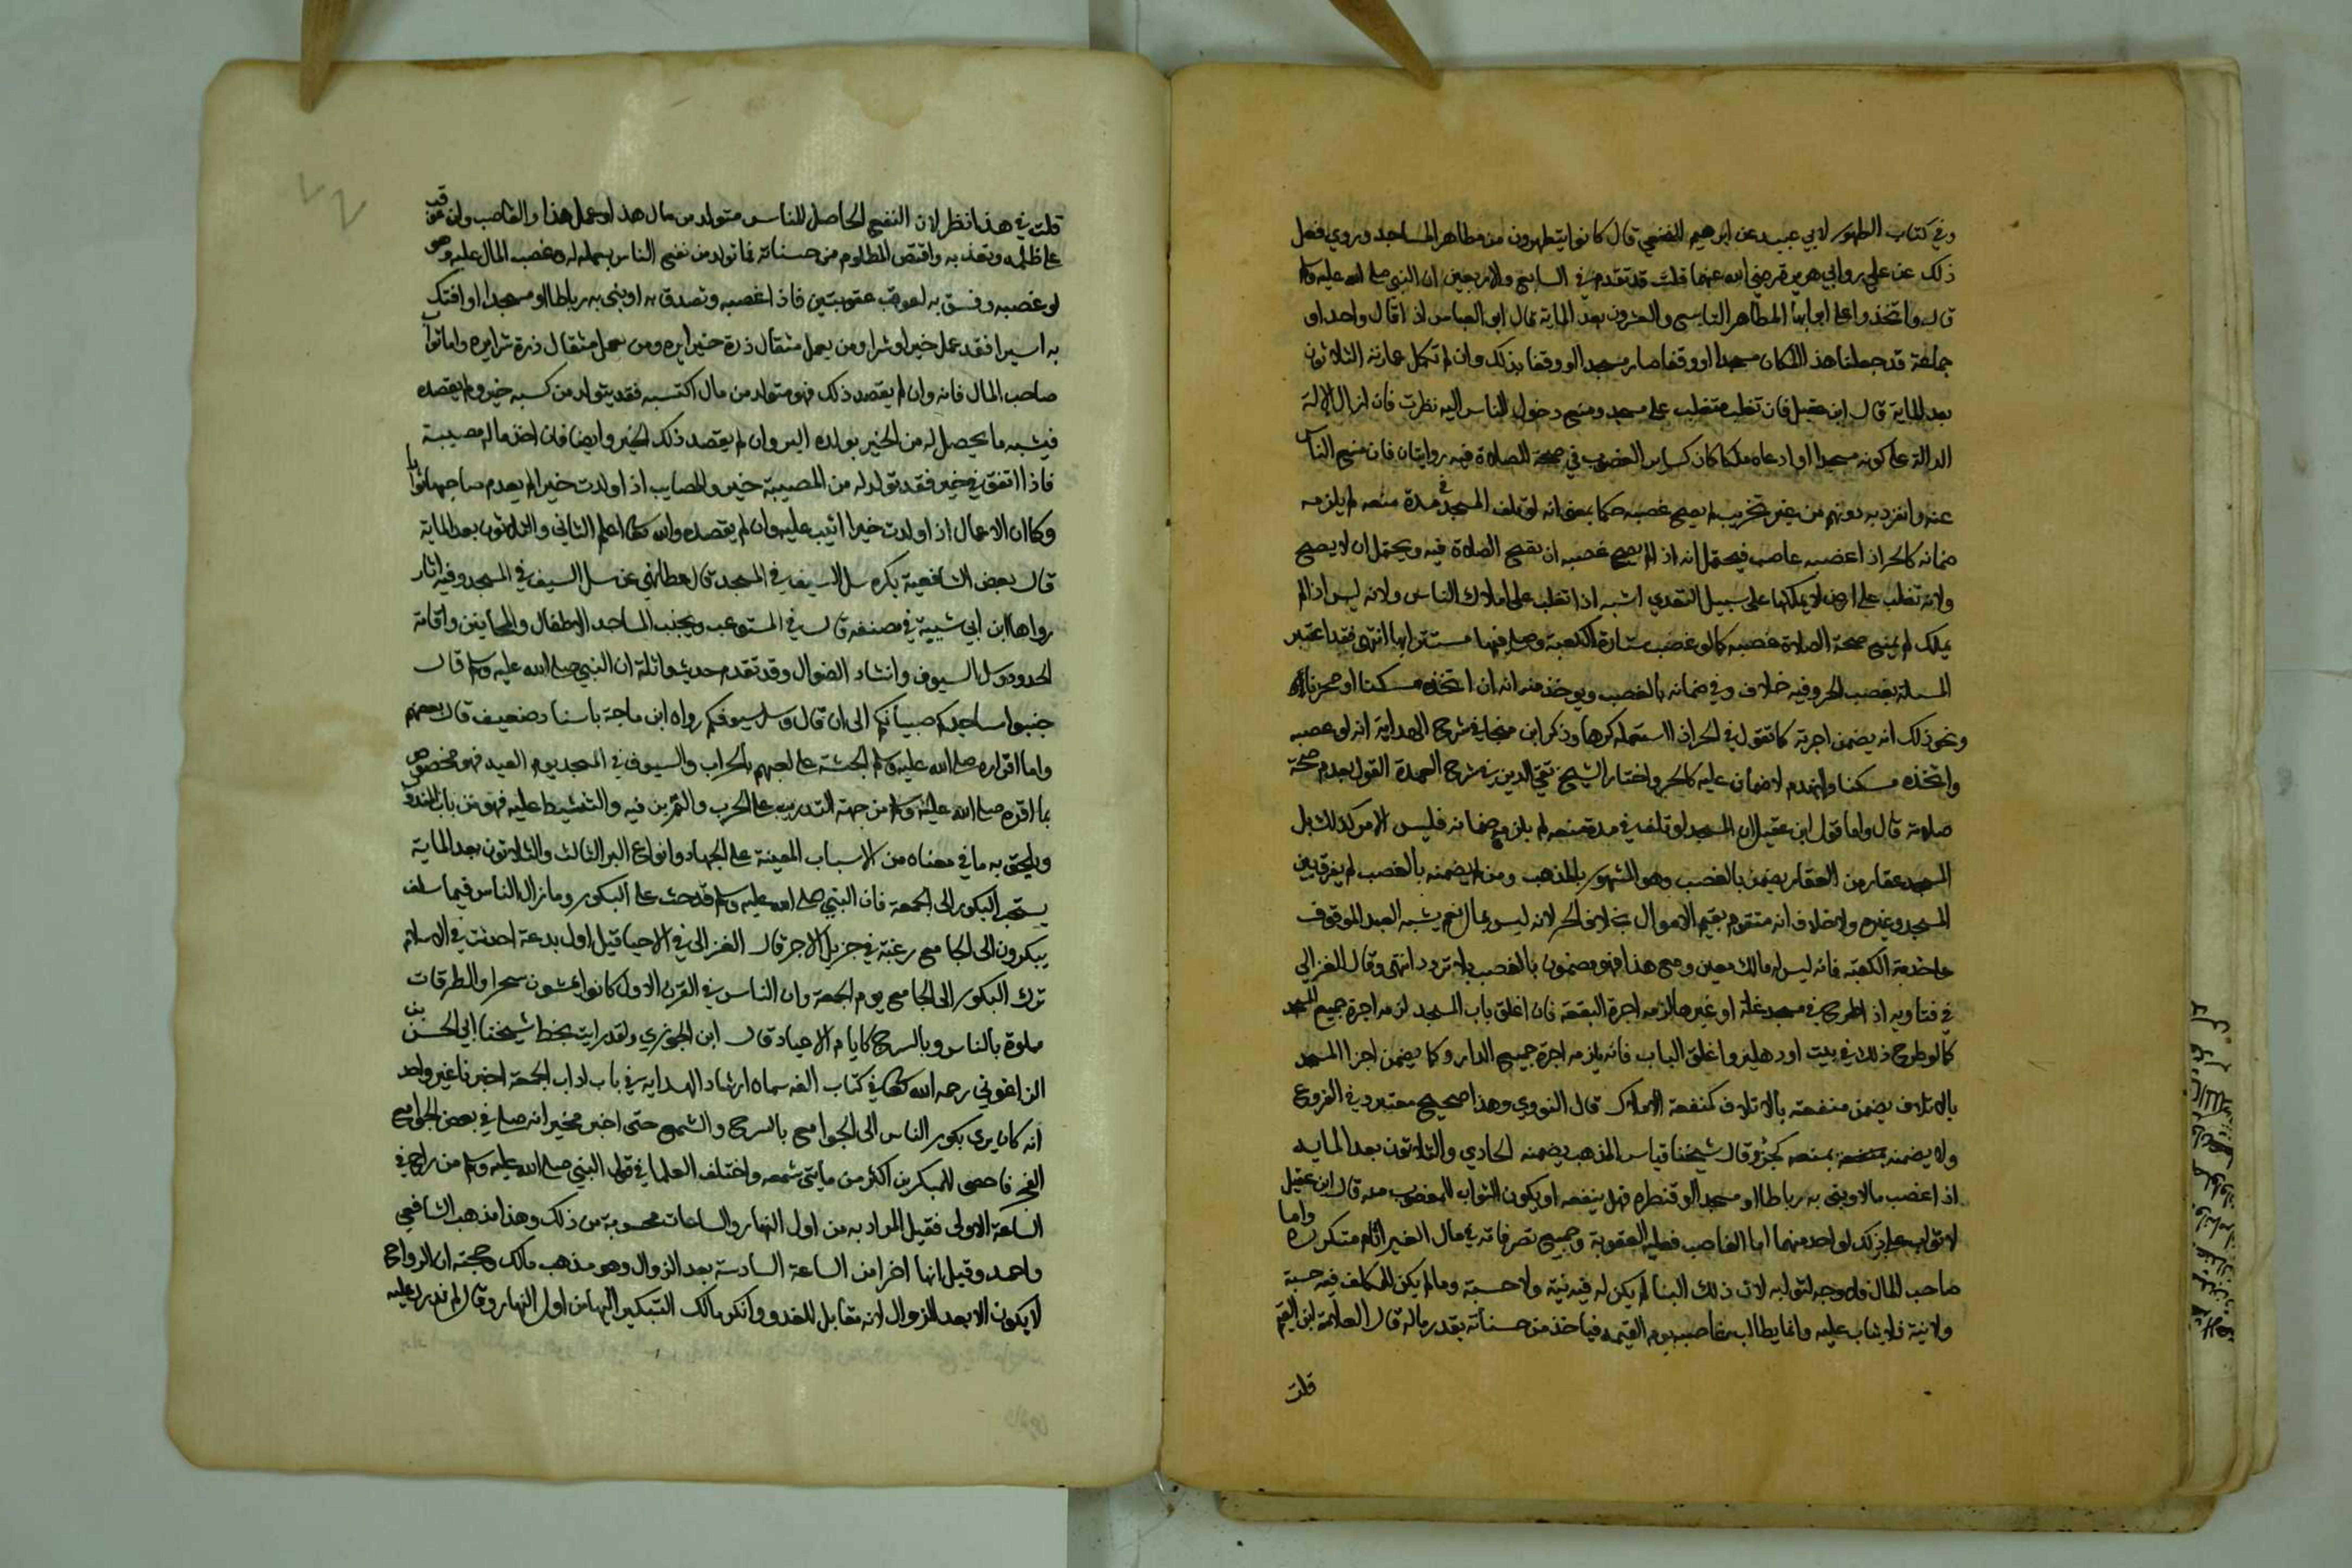 وفي كتاب الطهور لابي عبيد عن ابرهيم النخعي قال كانوا يتطهرون من مطاهر المساجد وروي فعل
ذلك عن علي وابي هريرة رضي الله عنهما قلت قد تقدم في السابع والاربعين ان النبي صلى الله عليه وسلم
قال واتخذوا على ابوابها المطاهر التاسع والعشرون بعد الماية قال ابو العباس اذا قال واحد او
جماعة قد جعلنا هذا المكان مسجدا او وقفا صار مسجدا ووقفا بذلك وان لم تكمل عمارته الثلاثون
بعد الماية قال ابن عقيل فان تغلب متغلب على مسجد ومنع دخول الناس اليه نظرت فان ازال الالة
الدالة على كونه مسجدا او ادعاه ملكا كان كساير الغصوب في صحة الصلاة فيه روايتان فان منع الناس
عنه وانفرد به دونهم من غير تخريب لم يصح غصبه حكما بمعنى انه لو تلف المسجد في مدة منعه لم يلزمه
ضمانه كالحر اذا غصبه غاصب فيحتمل انه اذا لم يصح غصبه ان تصح الصلاة فيه ويحتمل ان لا يصح
ولانه تغلب على ارض لا يملكها على سبيل التعدي اشبه اذا تغلب على املاك الناس ولانه ليس اذا لم
يملك لم يمنع صحة الصلاة غصبه كما لو غصب ستارة الكعبة وصلى فيها مستترا بها انتهى فقد اعتبر
المسالة بغصب الحر وفيه خلاف وفي ضمانه بالغصب ويوخذ منه انه ان اتخذه مسكنا او مخزنا
ونحو ذلك انه يضمن اجرته كما نقول في الحر اذا استعمله كرها وذكر ابن منجا في شرح الهداية انه لو غصبه
واتخذه مسكنا وانهدم لا ضمان عليه كالحر واختار الشيخ تقي الدين في شرح العمدة القول بعدم صحة
صلاته قال واما قول ابن عقيل ان المسجد لو تلف في مدة منعه لم يلزمه ضمانه فليس الامر كذلك بل
المسجد عقار من العقار يضمن بالغصب وهو المشهور بالمذهب ومن لا يضمنه بالغصب لم يفرق بين
المسجد وغيره ولا خلاف انه متقوم تقيم الاموال بخلاف الحر لانه ليس بمال نعم يشبه العبد الموقوف
على خدمة الكعبة فانه ليس له مالك معين ومع هذا فهو مضمون بالغصب بلا تردد انتهى وقال الغزالي
في فتاويه اذا طرح في مسجد غلة او غيرها لزمه اجرة البقعة فان اغلق باب المسجد لزمه اجرة جميع المسجد
كما لو طرح ذلك في بيت او دهليز واغلق الباب فانه يلزمه اجرة جميع الدار وكما يضمن اجزا المسجد
بالاتلاف يضمن منفعته بالاتلاف كمنفعة الاملاك قال النووي وهذا صحيح معتبر وفي الفروع
ولا يضمنه بمنعه كحر وقال شيخنا قياس المذهب يضمنه الحادي والثلاثون بعد الماية
اذا غصب مالا وبنى به رباطا او مسجدا او قنطرة فهل ينفعه او يكون الثواب للمغصوب منه قال ابن عقيل
لا ثواب على ذلك لواحد منهما اما الغاصب فعليه العقوبة وجميع تصرفاته في مال الغير اثام متكررة واما
صاحب المال فلا وجه لثوابه لان ذلك البنا لم يكن له فيه نية ولا حسبة وما لم يكن للمكلف فيه حسبة
ولا نية فلا يثاب عليه وانما يطالب غاصبه يوم القيمة فياخذ من حسناته بقدر ماله قال العلامة ابن القيم
قلت
قلت في هذا نظر لان النفع الحاصل للناس متولد من مال هذا وعمل هذا والغاصب وان عوقب
على ظلمه وتعديه واقتص المظلوم من حسناته فما تولد من نفع الناس بعمله له وغصب المال عليه وهو
لو غصبه وفسق به لعوقب عقوبتين فاذا غصبه وتصدق به او بنى به رباطا او مسجدا او افتك
به اسيرا فقد عمل خيرا وشرا ومن يعمل مثقال ذرة خيرا يره ومن يعمل مثقال ذرة شرا يره واما ثواب
صاحب المال فانه وان لم يقصد ذلك فهو متولد من مال اكتسبه فقد يتولد من كسبه خير ولم يقصده
فيشبه ما يحصل له من الخير بولده البر وان لم يقصد ذلك الخير وايضا فان اخذ ماله مصيبة
فاذا اتفق في خير فقد تولد له من المصيبة خير والمصايب اذا ولدت خيرا لم يعدم صاحبها ثوابا
وكما ان الاعمال اذا ولدت خيرا اثيب عليه وان لم يقصده والله تعالى اعلم الثاني والثلاثون بعد الماية
قال بعض الشافعية يكره سل السيف في المسجد قال عطا نهي عن سل السيف في المسجد وفيه اثار
رواها ابن ابي شيبة في مصنفه قال في المستوعب ويجنب المساجد الاطفال والمجانين واقامة
الحدود وسل السيوف وانشاد الضوال وقد تقدم حديث واثلة ان النبي صلى الله عليه وسلم قال
جنبوا مساجدكم صبيانكم الى ان قال وسل سيوفكم رواه ابن ماجة باسناد ضعيف قال بعضهم
واما اقراره صلى الله عليه وسلم الحبشة على لعبهم بالحراب والسيوف في المسجد يوم العيد فهو مخصوص
بما اقره صلى الله عليه وسلم من جهة التدريب على الحرب والتمرين فيه والتنشيط عليه فهو من باب المندوب
ويلحق به ما في معناه من الاسباب المعينة على الجهاد وانواع البر الثالث والثلاثون بعد الماية
يستحب البكور الى الجمعة فان النبي صلى الله عليه وسلم قد حث على البكور وما زال الناس فيما سلف
يبكرون الى الجامع رغبة في جزيل الاجر قال الغزالي في الاحيا قيل اول بدعة احدثت في الاسلام
ترك البكور الى الجامع يوم الجمعة وان الناس في القرن الاول كانوا يمشون سحرا والطرقات
مملوة بالناس وبالسرج كايام الاعياد قال ابن الجوزي ولقد رايت بخط شيخنا ابي الحسن بن
الزاغوني رحمه الله تعالى في كتاب الفه سماه ارشاد الهداية في باب اداب الجمعة اخبرنا غير واحد
انه كان يرى بكور الناس الى الجوامع بالسرج والشمع حتى اخبر مخبر انه صلى في بعض الجوامع
الفجر فاحصى للمبكرين اكثر من مايتي شمعه واختلف العلما في قول النبي صلى الله عليه وسلم من راح في
الساعة الاولى فقيل المراد به من اول النهار والساعات محسوبة من ذلك وهذا مذهب الشافعي
واحمد وقيل انها اخرا من الساعة السادسة بعد الزوال وهو مذهب مالك وحجته ان الرواح
لا يكون الا بعد الزوال لانه مقابل للغدو وانكر مالك التبكير اليها من اول النهار وقال لم ندرك عليه